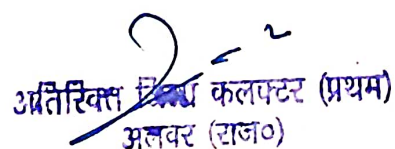 अतिरिक्त कलक्टर (प्रथम)
अलवर (राज०)